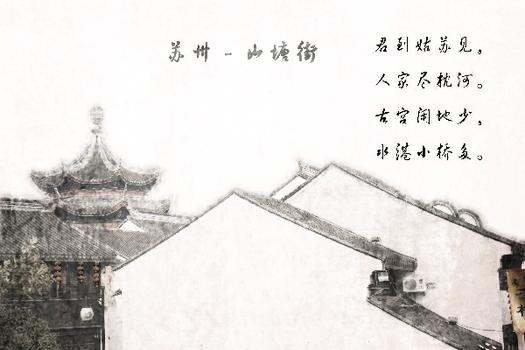 苏州-山塘街
君到姑苏见。
人家尽枕河。
古宫闲地少,
水港小桥多。